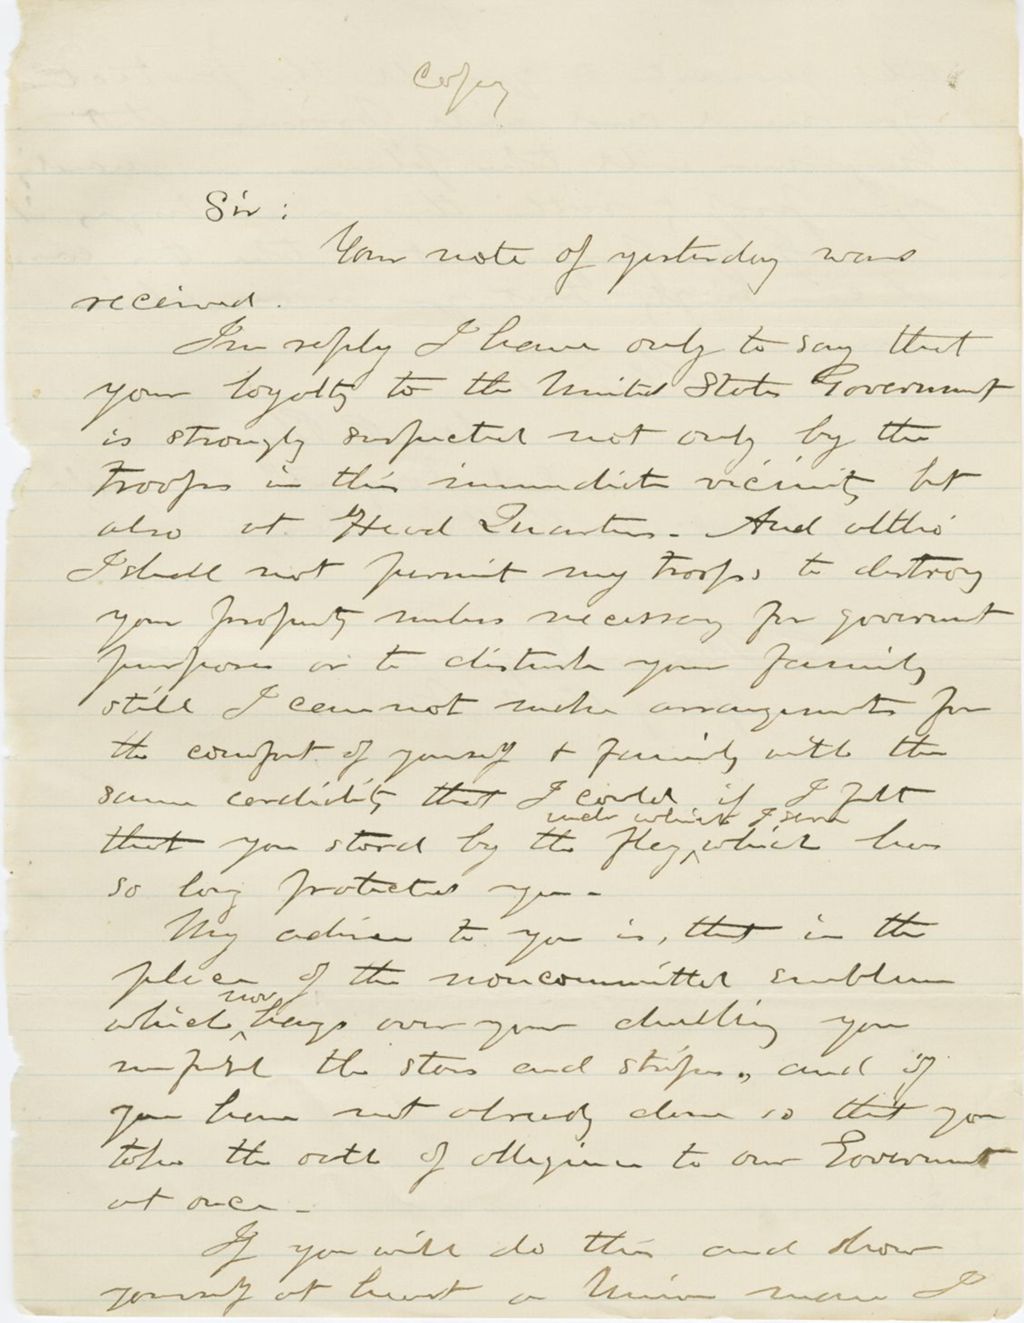 Copy
Sir:
Your note of yesterday was
received.
In reply I have only to say that
your loyalty to the United States Government
is strongly suspected not only by the
troops in this immediate vicinity but
also at Head Quarters. And altho'
I shall not permit my troops to destroy
your property unless necessary for government
purposes or to disturb your family
still I cannot make arrangements for
the comfort of yourself & family with the
same cordiality that I could if I felt
under which I serve
that you stood by the flag which has
so long protected you.
My advice to you is, that in the
place of the noncommittal emblem
now
which hangs over your dwelling you
unfurl the stars and stripes, and if
you have not already done so that you
take the oath of allegiance to our Government
at once.
If you will do this and show
yourself at heart a Union man I